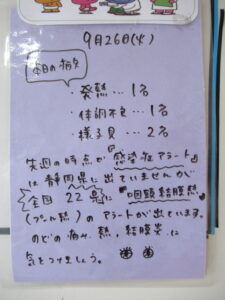 9月26日(火)
本日の病欠
・発熱…1名
・体調不良…1名
・様子見…2名
先週の時点で『感染症アラート』
は静岡県に出ていませんが
全国22県に『咽頭結膜熱』
(プール熱)のアラートが出ています。
のどの痛み、熱、結膜炎に
気をつけましょう。